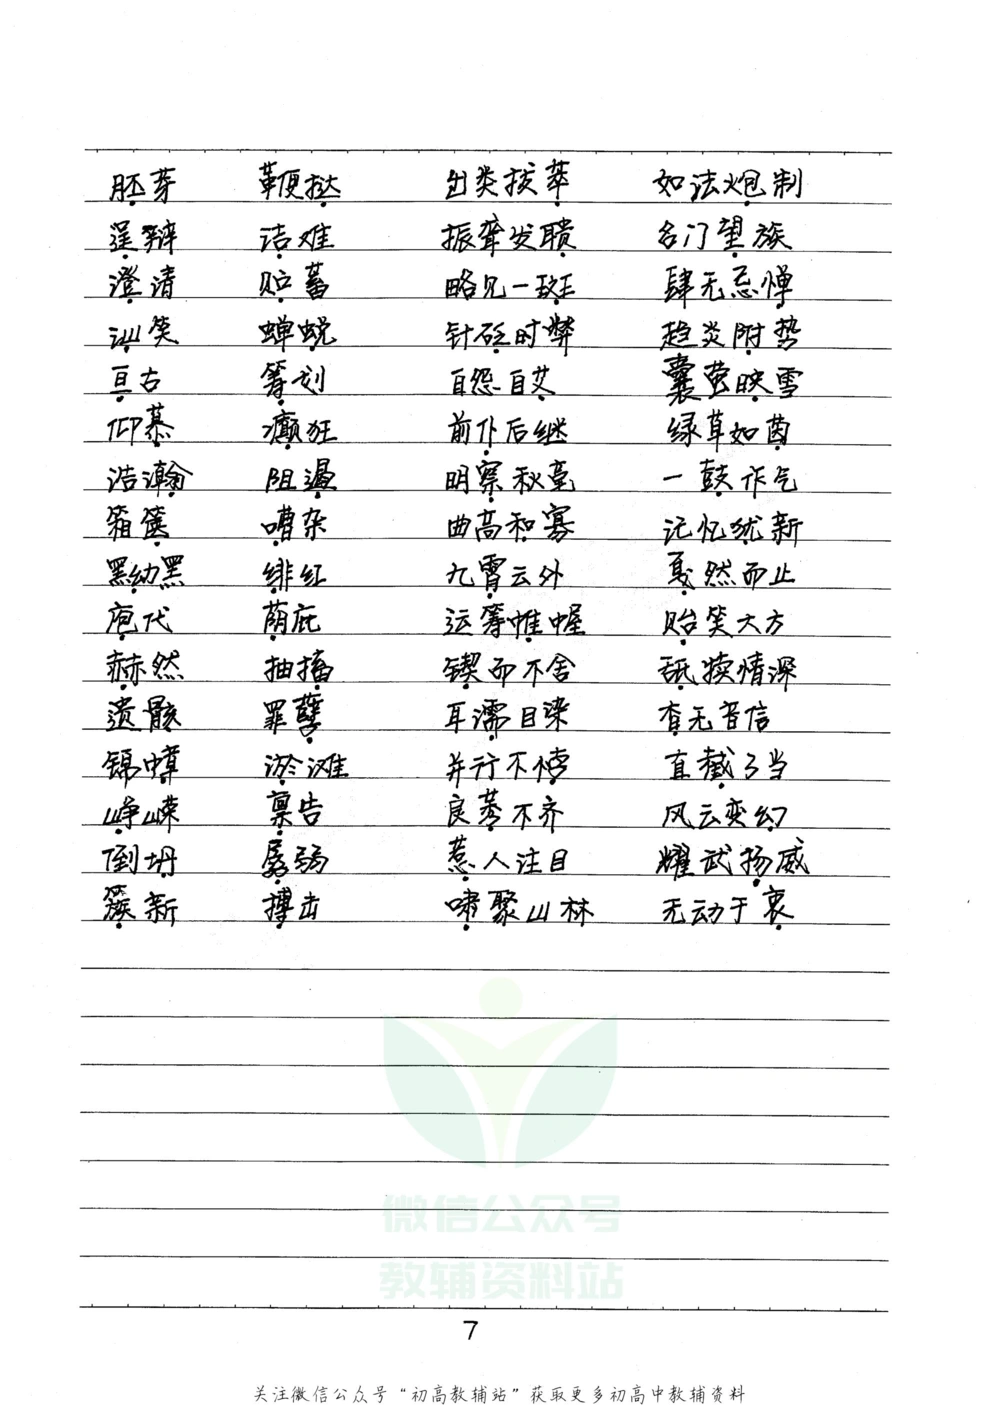 胚芽 鞭挞 出类拔萃 如法炮制
逞辩 诘难 振聋发聩 名门望族
澄清 贮蓄 略见一斑 肆无忌惮
讪笑 蝉蜕 针砭时弊 趋炎附势
亘古 筹划 自怨自艾 囊萤映雪
仰慕 癫狂 前仆后继 绿草如茵
浩瀚 阻遏 明察秋毫 一鼓作气
箱箧 嘈杂 曲高和寡 记忆犹新
黑黝黝 绯红 九霄云外 戛然而止
庖代 荫庇 运筹帷幄 贻笑大方
赫然 抽搐 锲而不舍 舐犊情深
遗骸 罪孽 耳濡目染 杳无音信
锦幛 淤滩 并行不悖 直截了当
峥嵘 禀告 良莠不齐 风云变幻
倒坍 孱弱 惹人注目 耀武扬威
簇新 搏击 啸聚山林 无动于衷
微信公众号
教辅资料站
7
关注微信公众号“初高教辅站”获取更多初高中教辅资料